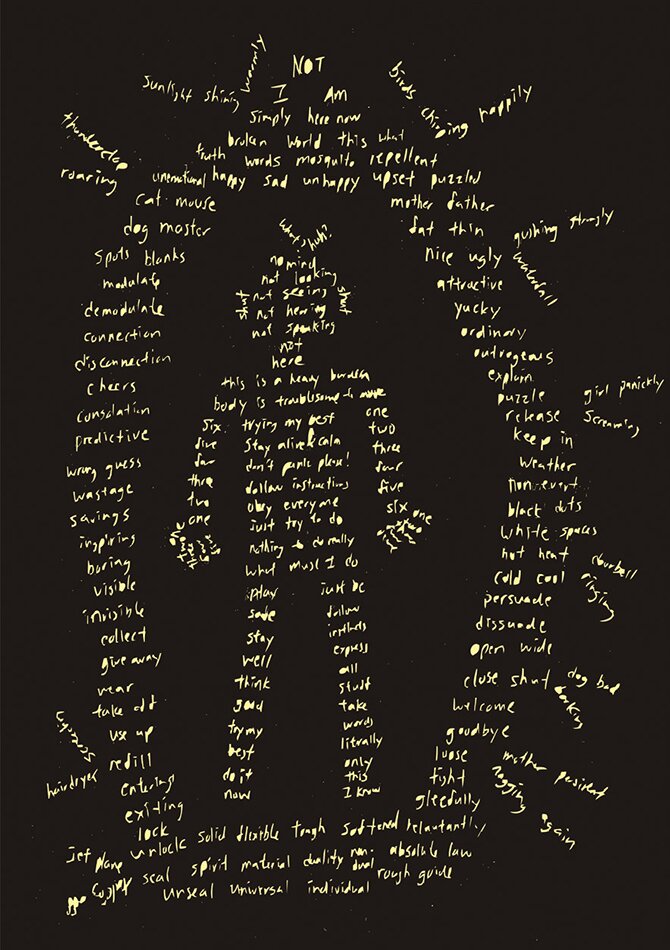 NOT
I Am
simply here now
broken world this what
truth words mosquito repellent
unemotional happy sad unhappy upset puzzled
sunlight shining warmly
birds chirping happily
thunderclap
roaring
cat mouse
dog master
spots blanks
modulate
demodulate
connection
disconnection
cheers
consolation
predictive
wrong guess
wastage
savings
inspiring
boring
visible
invisible
collect
give away
wear
take off
use up
refill
entering
exiting
lock
unlock
hairdryer
mother father
fat thin
nice ugly
attractive
yucky
ordinary
outrogeous
explain
puzzle
release
keep in
weather
non-event
black dots
white spaces
hot heat
cold cool
persuade
dissuade
open wide
close shut
welcome
goodbye
loose
tight
gleefully
relaxantly
gushing strongly
waterfall
girl panickly
screaming
doorbell
ringing
dog bad
barking
mother persistent
nagging again
what? huh?
no mind
not looking
not seeing
not hearing
shut
not speaking
not
here
this is a heavy burden
body is troublesome to move
trying my best
stay alive & calm
don't panic please!
follow instructions
obey everyone
just try to do
nothing to do really
what must I do
six
five
four
three
two
one
one
two
three
four
five
six
one
play
safe
stay
well
think
good
try my
best
do it
now
just be
follow
instincts
express
all
stuff
take
words
literally
only
this
I know
solid flexible tough softened
jet plane
seal spirit material quality non-dual absolute law
unseal universal individual rough guide